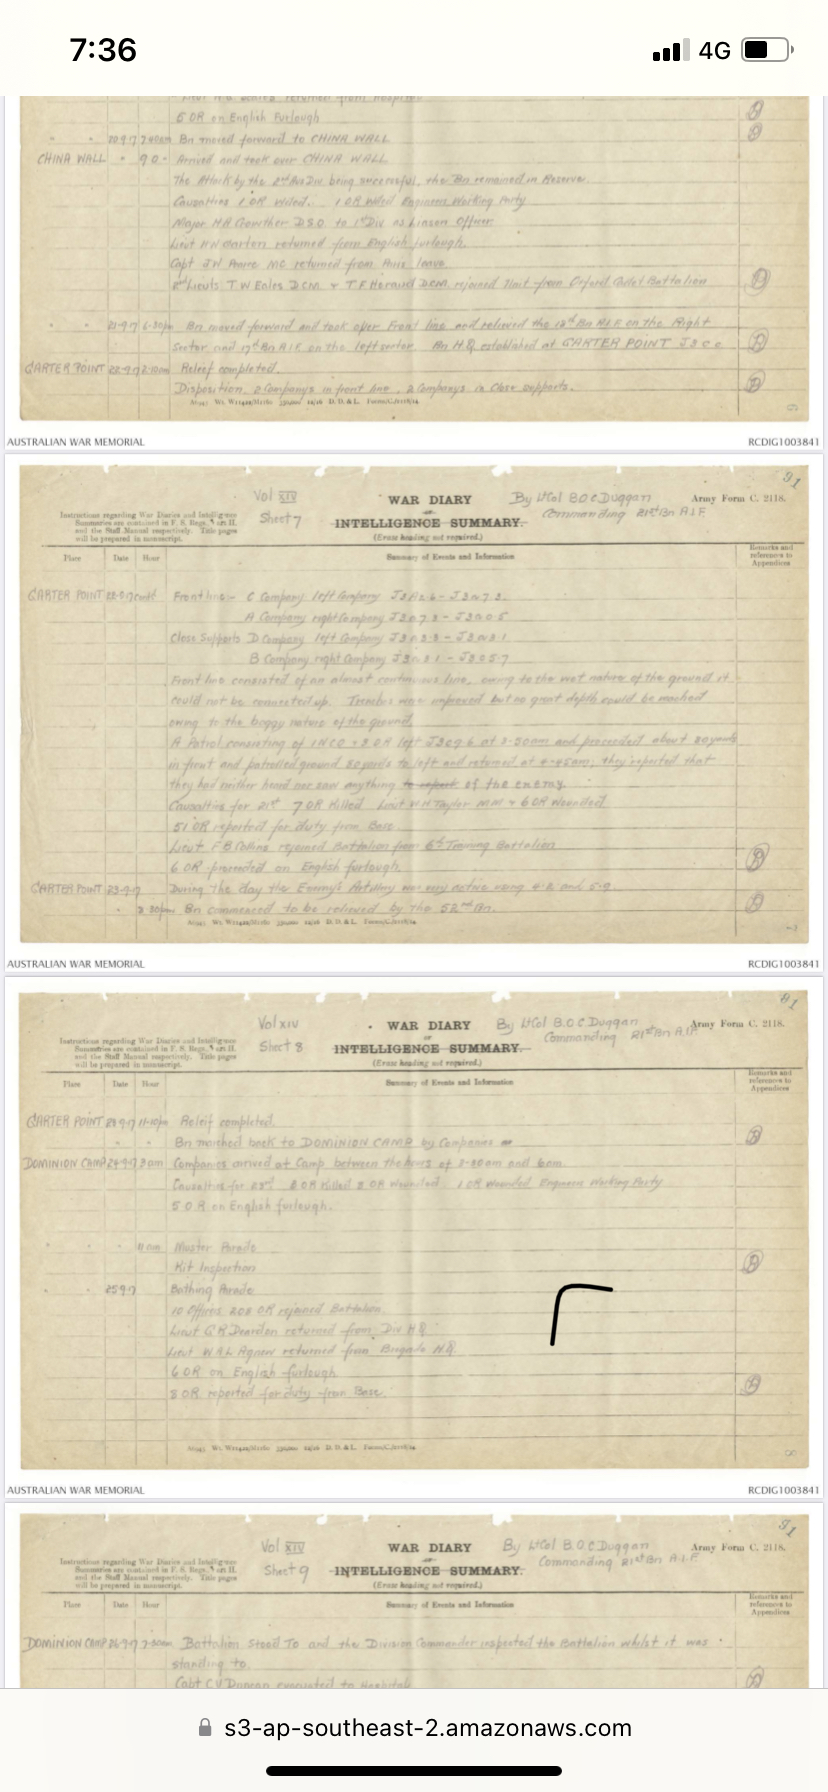 7:36
4G
5 OR on English Furlough
20-9-17 7-40am Bn moved forward to CHINA WALL
CHINA WALL " 9 0 - Arrived and took over CHINA WALL.
The Attack by the 2nd Aus Div. being successful, the Bn remained in Reserve.
Casualties 1 OR Killed. 1 OR Killed Engineers Working Party
Major HA Crowther D.S.O. to 1st Div as Liaison Officer
Lieut returned from English furlough.
Capt JW returned from Paris leave
2nd Lieuts T W Eales D.C.M. & T.F. Heraud D.C.M. rejoined Unit from Oxford Cadet Battalion
21-9-17 6-30pm Bn moved forward and took over Front line and relieved the Bn A.I.F. on the Right
Sector and 17th Bn A.I.F. on the left sector. Bn H.Q. established at GARTER POINT
GARTER POINT 22-9-17 Relief completed.
Disposition. 2 Companys in front line, 2 Companys in Close supports.
AUSTRALIAN WAR MEMORIAL RCDIG1003841
91
Vol XIV WAR DIARY By Lt Col B.O.C Duggan Army Form C. 2118.
Instructions regarding War Diaries and Intelligence
Summaries are contained in F. S. Regs., Part II.
and the Staff Manual respectively. Title pages
will be prepared in manuscript.
Sheet 7 or INTELLIGENCE SUMMARY. Commanding 21st Bn A.I.F.
(Erase heading not required.)
Place Date Hour Summary of Events and Information Remarks and references to Appendices
GARTER POINT 22-9-17 contd Front line:- C Company left Company
A Company right Company
Close Supports D Company left Company
B Company right Company
Front line consisted of an almost continuous line, owing to the wet nature of the ground it
could not be connected up. Trenches were improved but no great depth could be reached
owing to the boggy nature of the ground.
A Patrol consisting of 1 NCO & 3 OR left at 3-50am and proceeded about 80 yards
in front and patrolled ground 50 yards to left and returned at 4-45am; they reported that
they had neither heard nor saw anything to report of the enemy.
Casualties for 21st 7 OR Killed Lieut W H Taylor MM & 6 OR Wounded
51 OR reported for duty from Base.
Lieut F B Collins rejoined Battalion from 6th Training Battalion
6 OR proceeded on English furlough.
GARTER POINT 23-9-17 During the day the Enemy's Artillery was very active using 4.2 and 5.9
Bn commenced to be relieved by the 52nd Bn.
AUSTRALIAN WAR MEMORIAL RCDIG1003841
91
Vol XIV WAR DIARY By Lt Col B.O.C Duggan Army Form C. 2118.
Instructions regarding War Diaries and Intelligence
Summaries are contained in F. S. Regs., Part II.
and the Staff Manual respectively. Title pages
will be prepared in manuscript.
Sheet 8 or INTELLIGENCE SUMMARY. Commanding 21st Bn A.I.F.
(Erase heading not required.)
Place Date Hour Summary of Events and Information Remarks and references to Appendices
GARTER POINT 23-9-17 11-10pm Releif completed.
" " Bn marched back to DOMINION CAMP by Companies
DOMINION CAMP 24-9-17 3am Companies arrived at Camp between the hours of and 6am.
Casualties for 23rd OR Killed 8 OR Wounded. 1 OR Wounded Engineers Working Party
5 OR on English furlough.
" " 11am Muster Parade
Kit Inspection
25-9-17 Bathing Parade
10 Officers 208 OR rejoined Battalion.
Lieut G R Deardon returned from Div HQ
Lieut W A L Agnew returned from Brigade H.Q.
6 OR on English furlough
8 OR reported for duty from Base.
8
AUSTRALIAN WAR MEMORIAL RCDIG1003841
91
Vol XIV WAR DIARY By Lt Col B.O.C Duggan Army Form C. 2118.
Instructions regarding War Diaries and Intelligence
Summaries are contained in F. S. Regs., Part II.
and the Staff Manual respectively. Title pages
will be prepared in manuscript.
Sheet 9 or INTELLIGENCE SUMMARY. Commanding 21st Bn A.I.F.
(Erase heading not required.)
Place Date Hour Summary of Events and Information Remarks and references to Appendices
DOMINION CAMP 26-9-17 7-30am Battalion Stood To and the Division Commander inspected the Battalion whilst it was
standing to.
Capt C V Duncan evacuated to Hospital
s3-ap-southeast-2.amazonaws.com